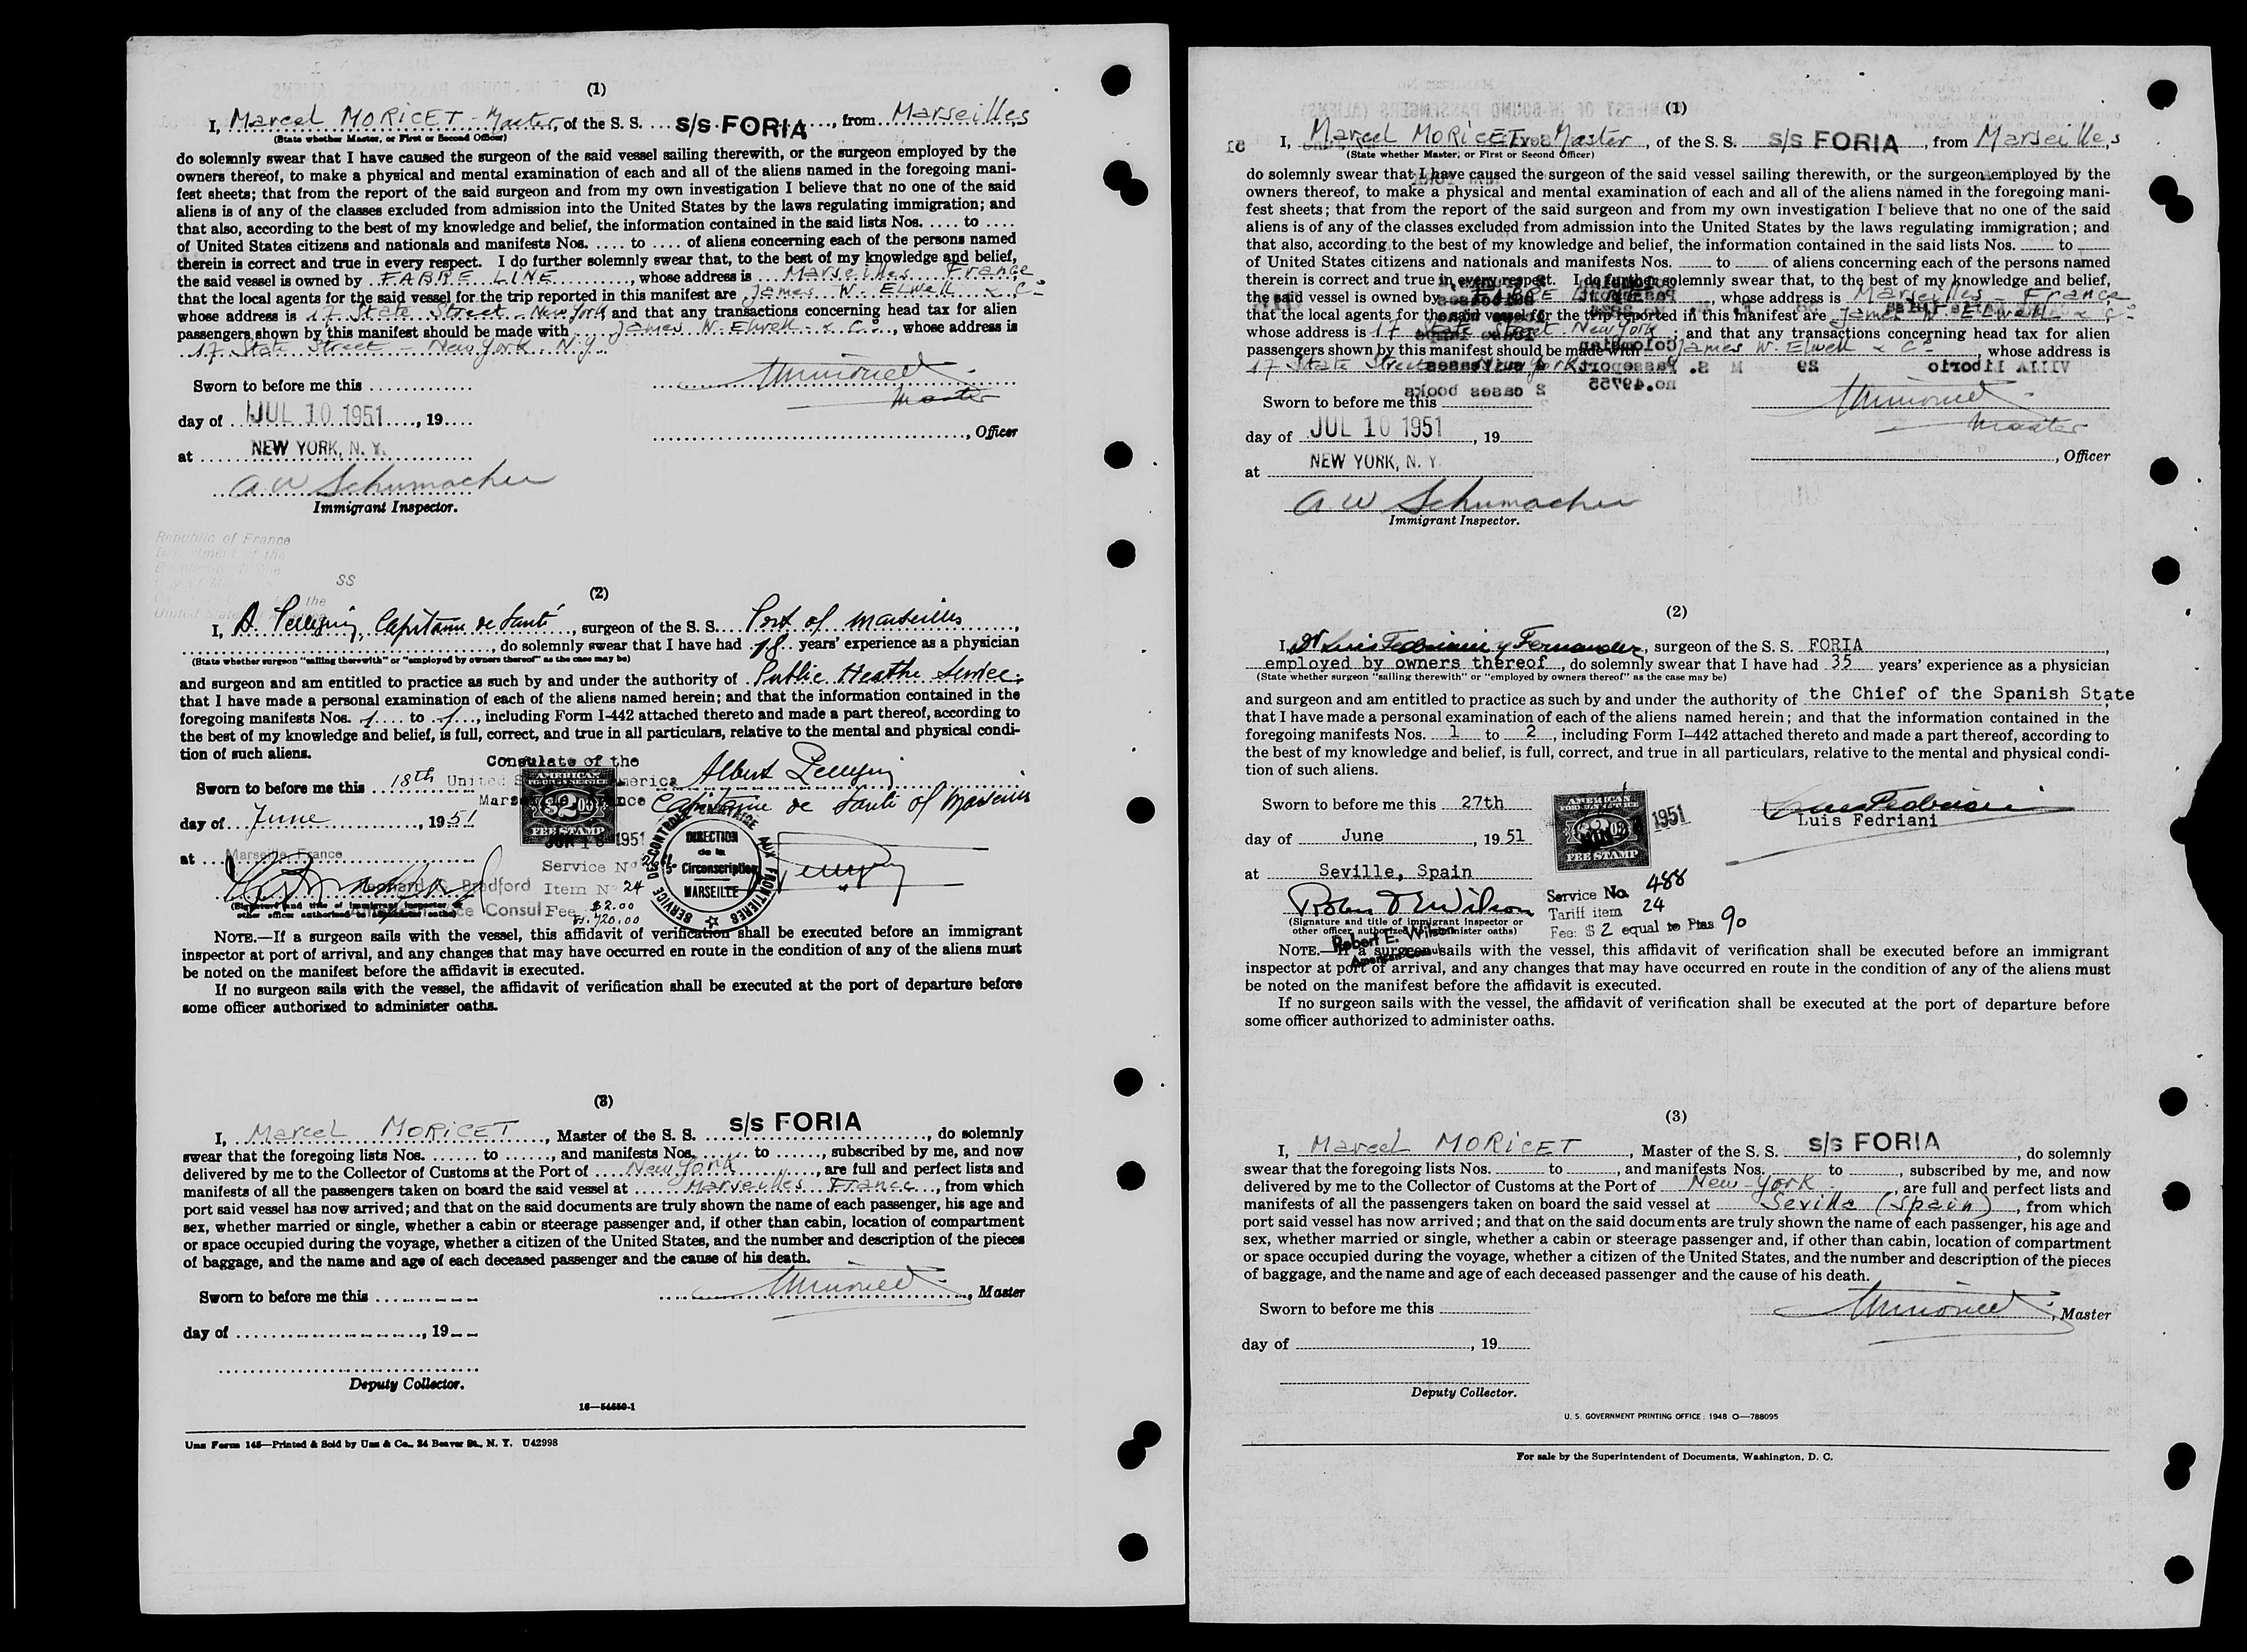 (1)
I, Marcel MORICET - Master, of the S. S. s/s FORIA, from Marseilles
(State whether Master, or First or Second Officer)
do solemnly swear that I have caused the surgeon of the said vessel sailing therewith, or the surgeon employed by the
owners thereof, to make a physical and mental examination of each and all of the aliens named in the foregoing mani-
fest sheets; that from the report of the said surgeon and from my own investigation I believe that no one of the said
aliens is of any of the classes excluded from admission into the United States by the laws regulating immigration; and
that also, according to the best of my knowledge and belief, the information contained in the said lists Nos. .... to ....
of United States citizens and nationals and manifests Nos. .... to .... of aliens concerning each of the persons named
therein is correct and true in every respect. I do further solemnly swear that, to the best of my knowledge and belief,
the said vessel is owned by FABRE LINE, whose address is Marseilles France
that the local agents for the said vessel for the trip reported in this manifest are James W. ELwell & Co
whose address is 17 State Street - New York and that any transactions concerning head tax for alien
passengers shown by this manifest should be made with James W. Elwell & Co, whose address is
17 State Street - New York N.Y.
Sworn to before me this
Master
day of JUL 10 1951, 19....
, Officer
at NEW YORK, N. Y.
A W Schumacher
Immigrant Inspector.
Republic of France
SS
(2)
I, A Pellegrin, Capitaine de Santé, surgeon of the S. S. Port of Marseilles,
, do solemnly swear that I have had 18 years' experience as a physician
(State whether surgeon "sailing therewith" or "employed by owners thereof" as the case may be)
and surgeon and am entitled to practice as such by and under the authority of Public Heathe Service;
that I have made a personal examination of each of the aliens named herein; and that the information contained in the
foregoing manifests Nos. 1 to 1, including Form I-442 attached thereto and made a part thereof, according to
the best of my knowledge and belief, is full, correct, and true in all particulars, relative to the mental and physical condi-
tion of such aliens.
Consulate of the
Sworn to before me this 18th
Albert Pellegrin
Capitaine de Santé of Marseilles
AMERICAN
$2.00
FEE STAMP
day of June, 1951
JUN 18 1951
at Marseille, France
Service No
Bradford Item No 24
Consul Fee $2.00
Fr. 720.00
SERVICE DE CONTROLE SANITAIRE AUX FRONTIERES
DIRECTION
de la
5e Circonscription
MARSEILLE
(Signature and title of immigrant inspector or
other officer authorized to administer oaths)
NOTE.—If a surgeon sails with the vessel, this affidavit of verification shall be executed before an immigrant
inspector at port of arrival, and any changes that may have occurred en route in the condition of any of the aliens must
be noted on the manifest before the affidavit is executed.
If no surgeon sails with the vessel, the affidavit of verification shall be executed at the port of departure before
some officer authorized to administer oaths.
(3)
I, Marcel MORICET, Master of the S. S. s/s FORIA, do solemnly
swear that the foregoing lists Nos. ...... to ......, and manifests Nos. ...... to ......, subscribed by me, and now
delivered by me to the Collector of Customs at the Port of New York, are full and perfect lists and
manifests of all the passengers taken on board the said vessel at Marseilles France, from which
port said vessel has now arrived; and that on the said documents are truly shown the name of each passenger, his age and
sex, whether married or single, whether a cabin or steerage passenger and, if other than cabin, location of compartment
or space occupied during the voyage, whether a citizen of the United States, and the number and description of the pieces
of baggage, and the name and age of each deceased passenger and the cause of his death.
Sworn to before me this
, Master
day of ......, 19
Deputy Collector.
16—54650-1
Unz Form 145—Printed & Sold by Unz & Co., 24 Beaver St., N. Y. U42998
(1)
I, Marcel MORICET, Master, of the S. S. s/s FORIA, from Marseilles
(State whether Master, or First or Second Officer)
do solemnly swear that I have caused the surgeon of the said vessel sailing therewith, or the surgeon employed by the
owners thereof, to make a physical and mental examination of each and all of the aliens named in the foregoing mani-
fest sheets; that from the report of the said surgeon and from my own investigation I believe that no one of the said
aliens is of any of the classes excluded from admission into the United States by the laws regulating immigration; and
that also, according to the best of my knowledge and belief, the information contained in the said lists Nos. ...... to ......
of United States citizens and nationals and manifests Nos. ...... to ...... of aliens concerning each of the persons named
therein is correct and true in every respect. I do further solemnly swear that, to the best of my knowledge and belief,
the said vessel is owned by FABRE LINE, whose address is Marseilles France
that the local agents for the said vessel for the trip reported in this manifest are James W. ELwell & Co
whose address is 17 State Street New York; and that any transactions concerning head tax for alien
passengers shown by this manifest should be made with James W. Elwell & Co, whose address is
17 State Street New York
Sworn to before me this
Master
day of JUL 10 1951, 19
, Officer
at NEW YORK, N. Y.
A W Schumacher
Immigrant Inspector.
(2)
I, Dr Luis Fedriani y Fernandez, surgeon of the S. S. FORIA,
employed by owners thereof, do solemnly swear that I have had 35 years' experience as a physician
(State whether surgeon "sailing therewith" or "employed by owners thereof" as the case may be)
and surgeon and am entitled to practice as such by and under the authority of the Chief of the Spanish State;
that I have made a personal examination of each of the aliens named herein; and that the information contained in the
foregoing manifests Nos. 1 to 2, including Form I-442 attached thereto and made a part thereof, according to
the best of my knowledge and belief, is full, correct, and true in all particulars, relative to the mental and physical condi-
tion of such aliens.
Sworn to before me this 27th
AMERICAN
FEE STAMP
1951
Luis Fedriani
day of June, 1951
at Seville, Spain
Robert E Wilson
Service No. 488
Tariff item 24
Fee: $ 2 equal to Ptas 90
(Signature and title of immigrant inspector or
other officer authorized to administer oaths)
Robert E. Wilson
American Consul
NOTE.—If a surgeon sails with the vessel, this affidavit of verification shall be executed before an immigrant
inspector at port of arrival, and any changes that may have occurred en route in the condition of any of the aliens must
be noted on the manifest before the affidavit is executed.
If no surgeon sails with the vessel, the affidavit of verification shall be executed at the port of departure before
some officer authorized to administer oaths.
(3)
I, Marcel MORICET, Master of the S. S. s/s FORIA, do solemnly
swear that the foregoing lists Nos. ...... to ......, and manifests Nos. ...... to ......, subscribed by me, and now
delivered by me to the Collector of Customs at the Port of New-York, are full and perfect lists and
manifests of all the passengers taken on board the said vessel at Seville (Spain), from which
port said vessel has now arrived; and that on the said documents are truly shown the name of each passenger, his age and
sex, whether married or single, whether a cabin or steerage passenger and, if other than cabin, location of compartment
or space occupied during the voyage, whether a citizen of the United States, and the number and description of the pieces
of baggage, and the name and age of each deceased passenger and the cause of his death.
Sworn to before me this
, Master
day of ......, 19
Deputy Collector.
U. S. GOVERNMENT PRINTING OFFICE: 1948 O—788095
For sale by the Superintendent of Documents, Washington, D. C.